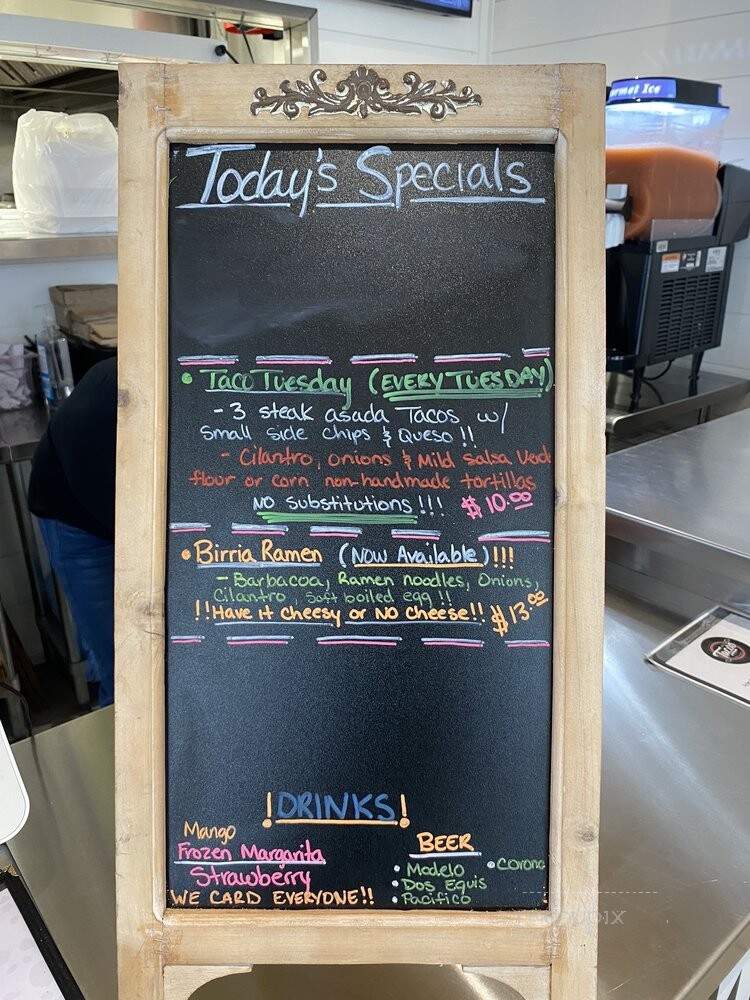 Today's Specials
• Taco Tuesday (EVERY TUESDAY)
- 3 steak asada Tacos w/
small side chips & Queso !!
- Cilantro, onions & Mild salsa Verde
flour or corn non-handmade tortillas
NO substitutions !!! $10.00
• Birria Ramen (Now Available)!!!
- Barbacoa, Ramen noodles, Onions,
Cilantro, soft boiled egg !!
!!Have it cheesy or NO cheese!! $13.00
!DRINKS!
Mango
Frozen Margarita
Strawberry
WE CARD EVERYONE!!
BEER
• Modelo • Corona
• Dos Equis
• Pacifico